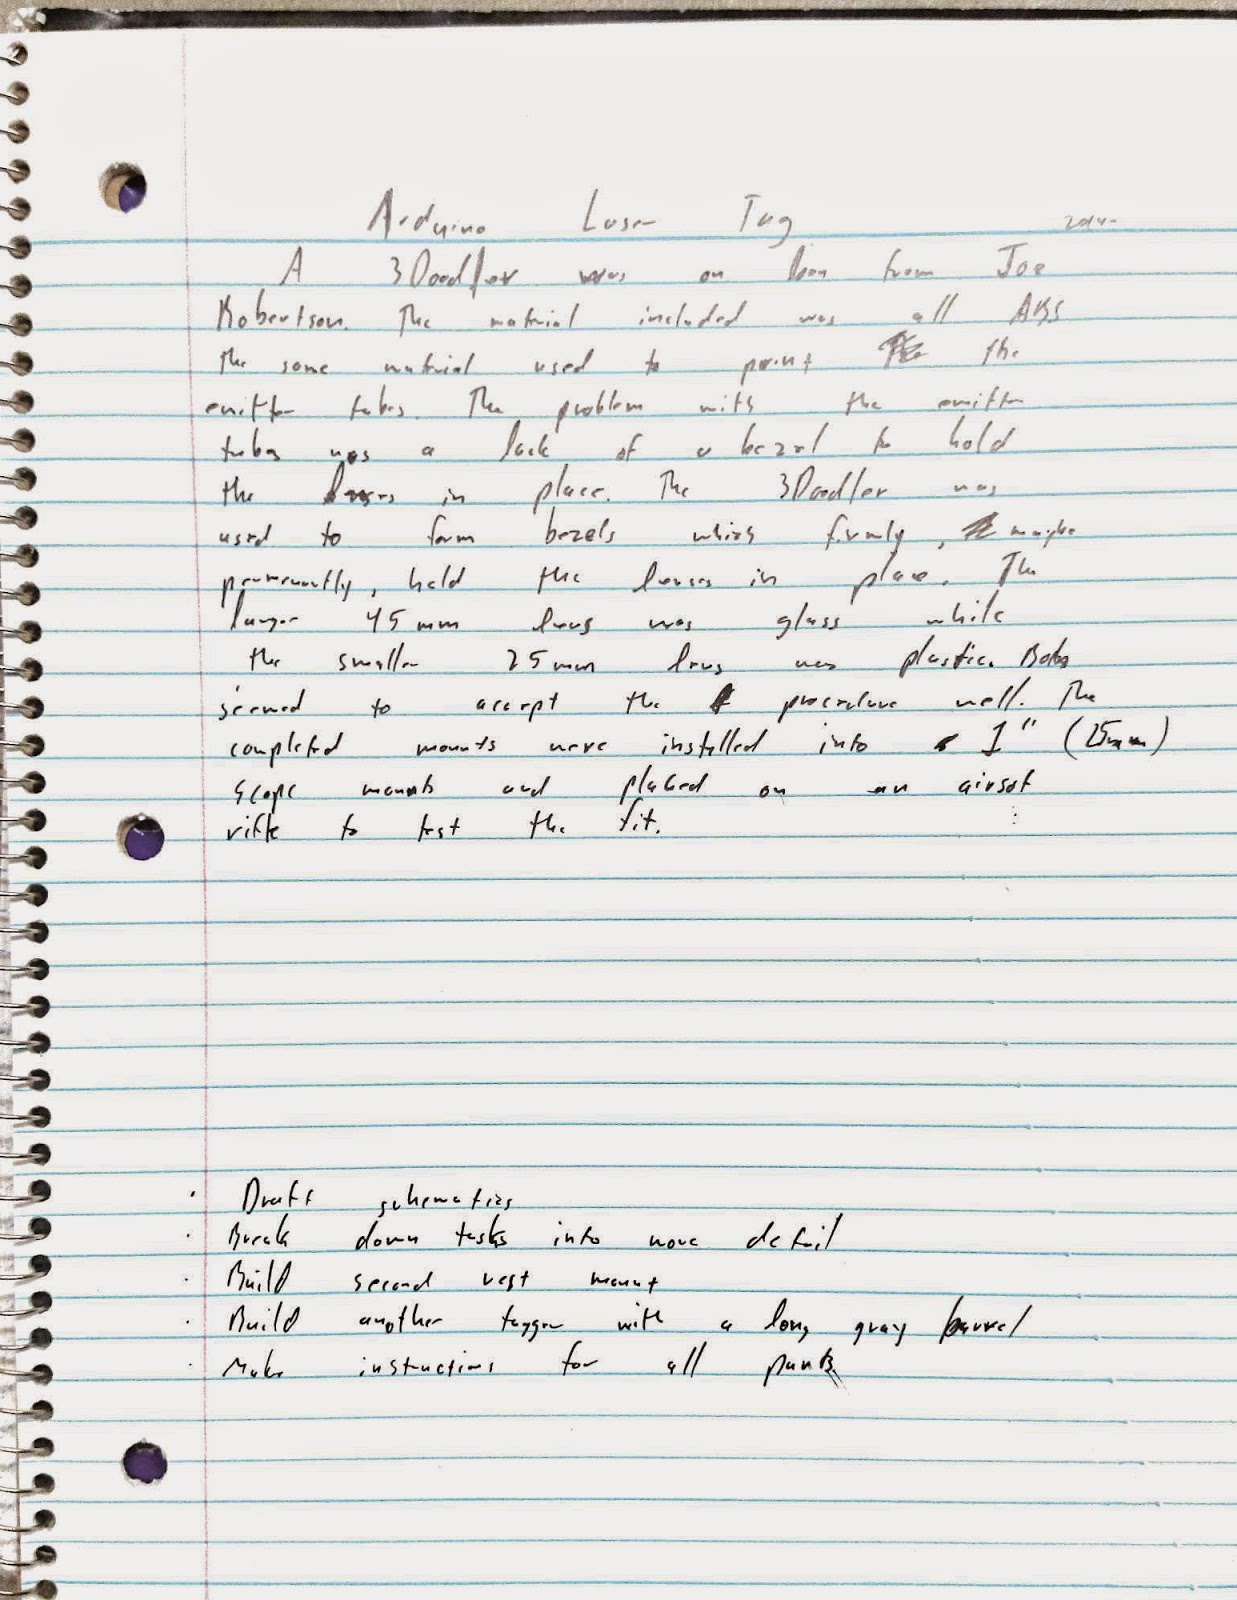 Arduino Laser Tag
A 3Doodler was on loan from Joe
Robertson. The material included was all ABS
the same material used to print the
emitter tubes. The problem with the emitter
tubes was a lack of a bezel to hold
the lenses in place. The 3Doodler was
used to form bezels which firmly, maybe
permanently, held the lenses in place. The
larger 45mm lens was glass while
the smaller 25mm lens was plastic. Both
seemed to accept the procedure well. The
completed mounts were installed into 1" (25mm)
scope mounts and placed on an airsoft
rifle to test the fit.
· Draft schematics
· Break down tasks into more detail
· Build second vest mount
· Build another tagger with a long gray barrel
· Make instructions for all